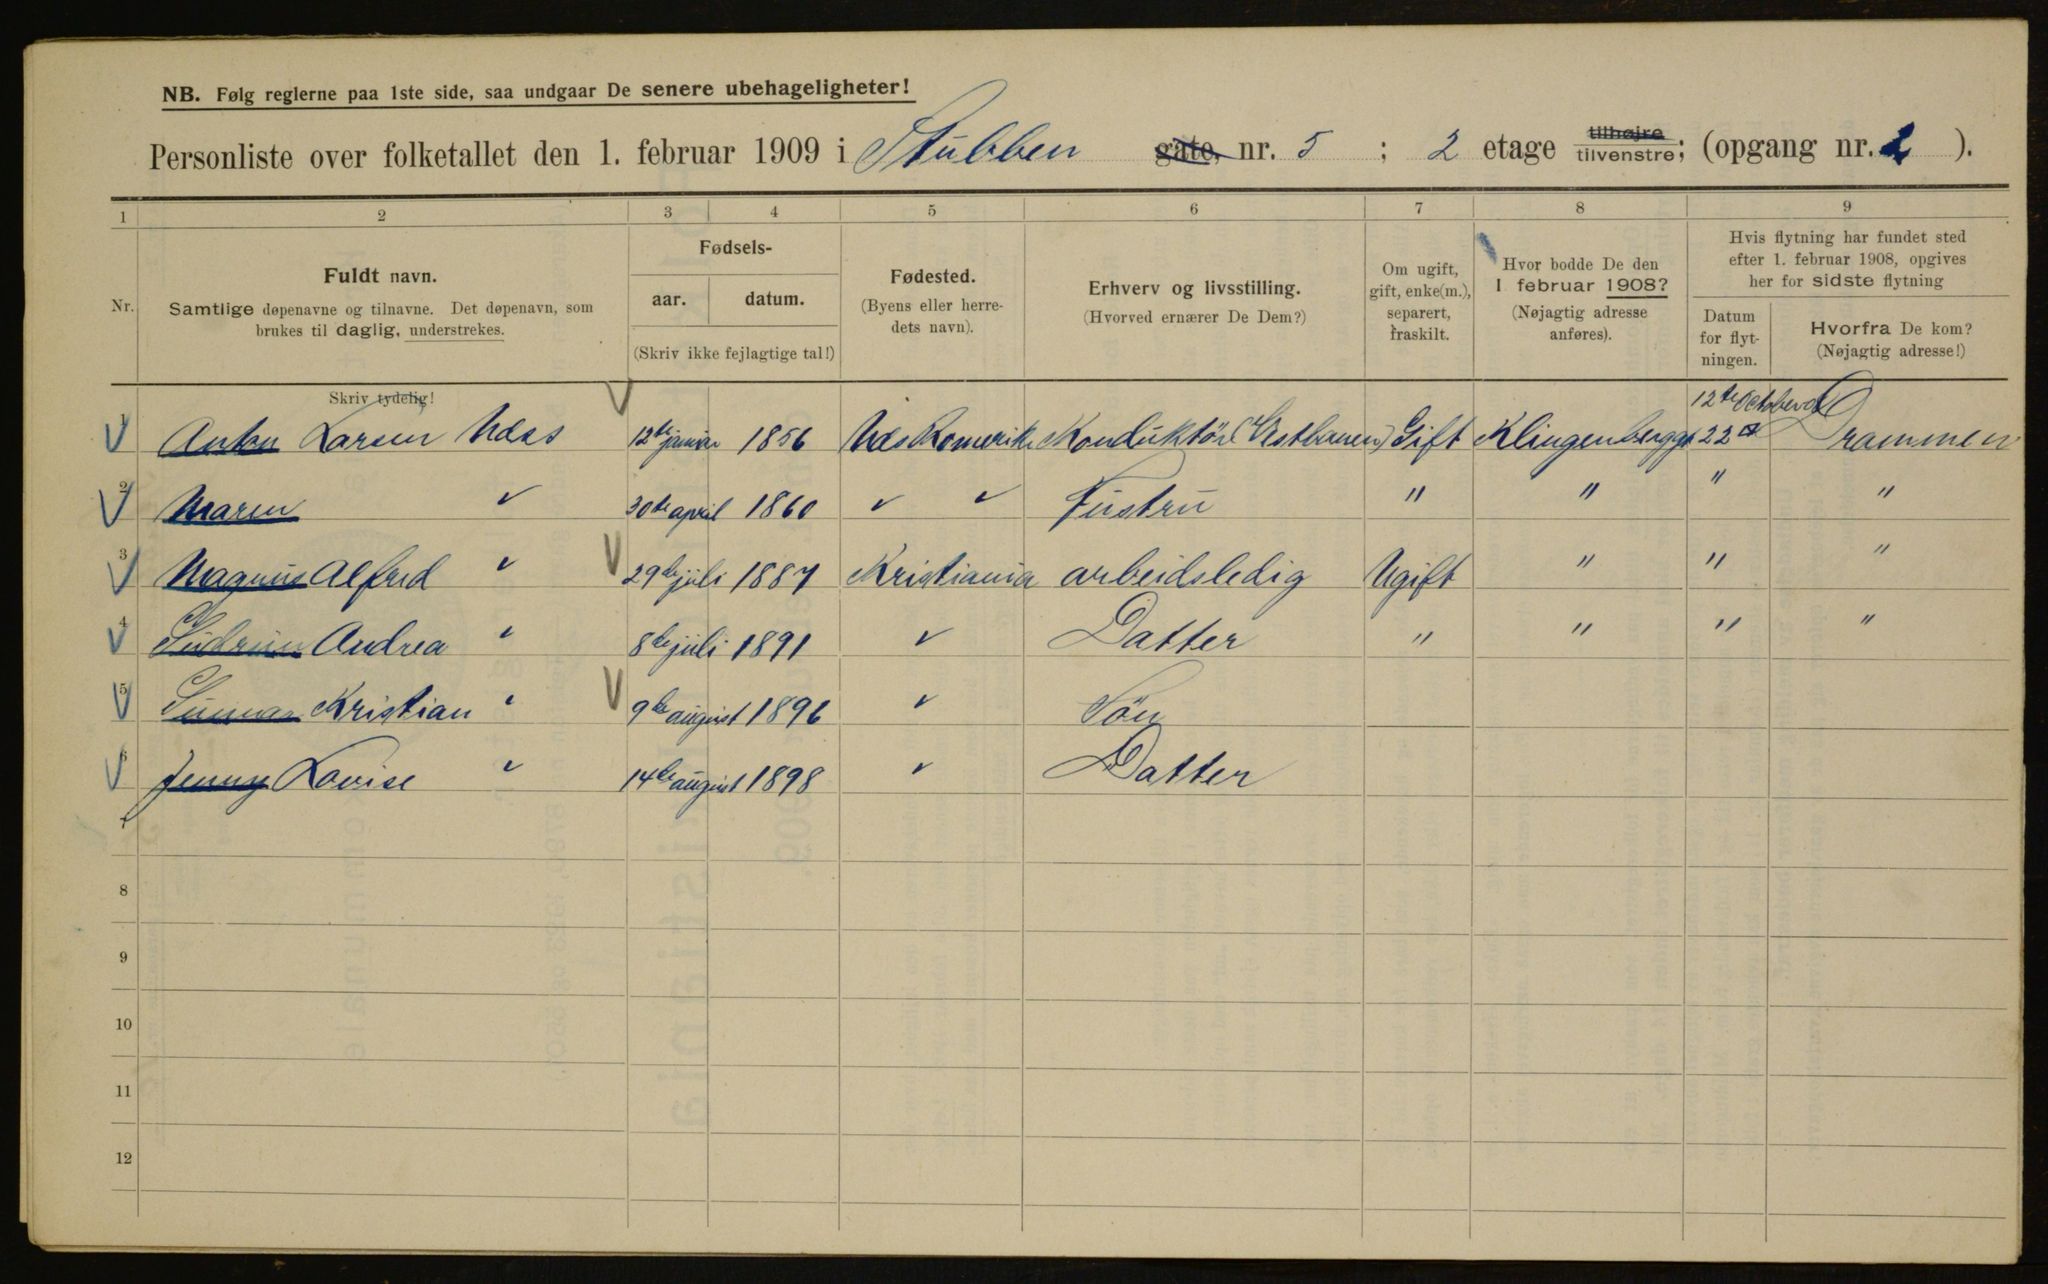 NB. Følg reglerne paa 1ste side, saa undgaar De senere ubehageligheter!
Personliste over folketallet den 1. februar 1909 i Stubben gate, nr. 5 ; 2 etage tilhøjre tilvenstre; (opgang nr. 2 ).
1 2 3 4 5 6 7 8 9
Nr. Fuldt navn. Samtlige døpenavne og tilnavne. Det døpenavn, som brukes til daglig, understrekes.
Fødsels- aar. datum. (Skriv ikke fejlagtige tal!)
Fødested. (Byens eller herredets navn).
Erhverv og livsstilling. (Hvorved ernærer De Dem?)
Om ugift, gift, enke(m.), separert, fraskilt.
Hvor bodde De den 1 februar 1908? (Nøjagtig adresse anføres).
Hvis flytning har fundet sted efter 1. februar 1908, opgives her for sidste flytning
Datum for flytningen. Hvorfra De kom? (Nøjagtig adresse!)
Skriv tydelig!
1 Anton Larsen Udes 12te januar 1856 Udes Romerike Konduktör (Vestbanen) Gift Klingenberggt 22 12te October Drammen
2 Maren " 30te april 1860 " " Hustru " " " "
3 Magnus Alfred " 29de juli 1887 Kristiania arbeidsledig Ugift " " "
4 Gudrun Andrea " 8de juli 1891 " Datter " " " "
5 Gunnar Kristian " 9de august 1896 " Sön
6 Jenny Lovise " 14de august 1898 " Datter
7
8
9
10
11
12